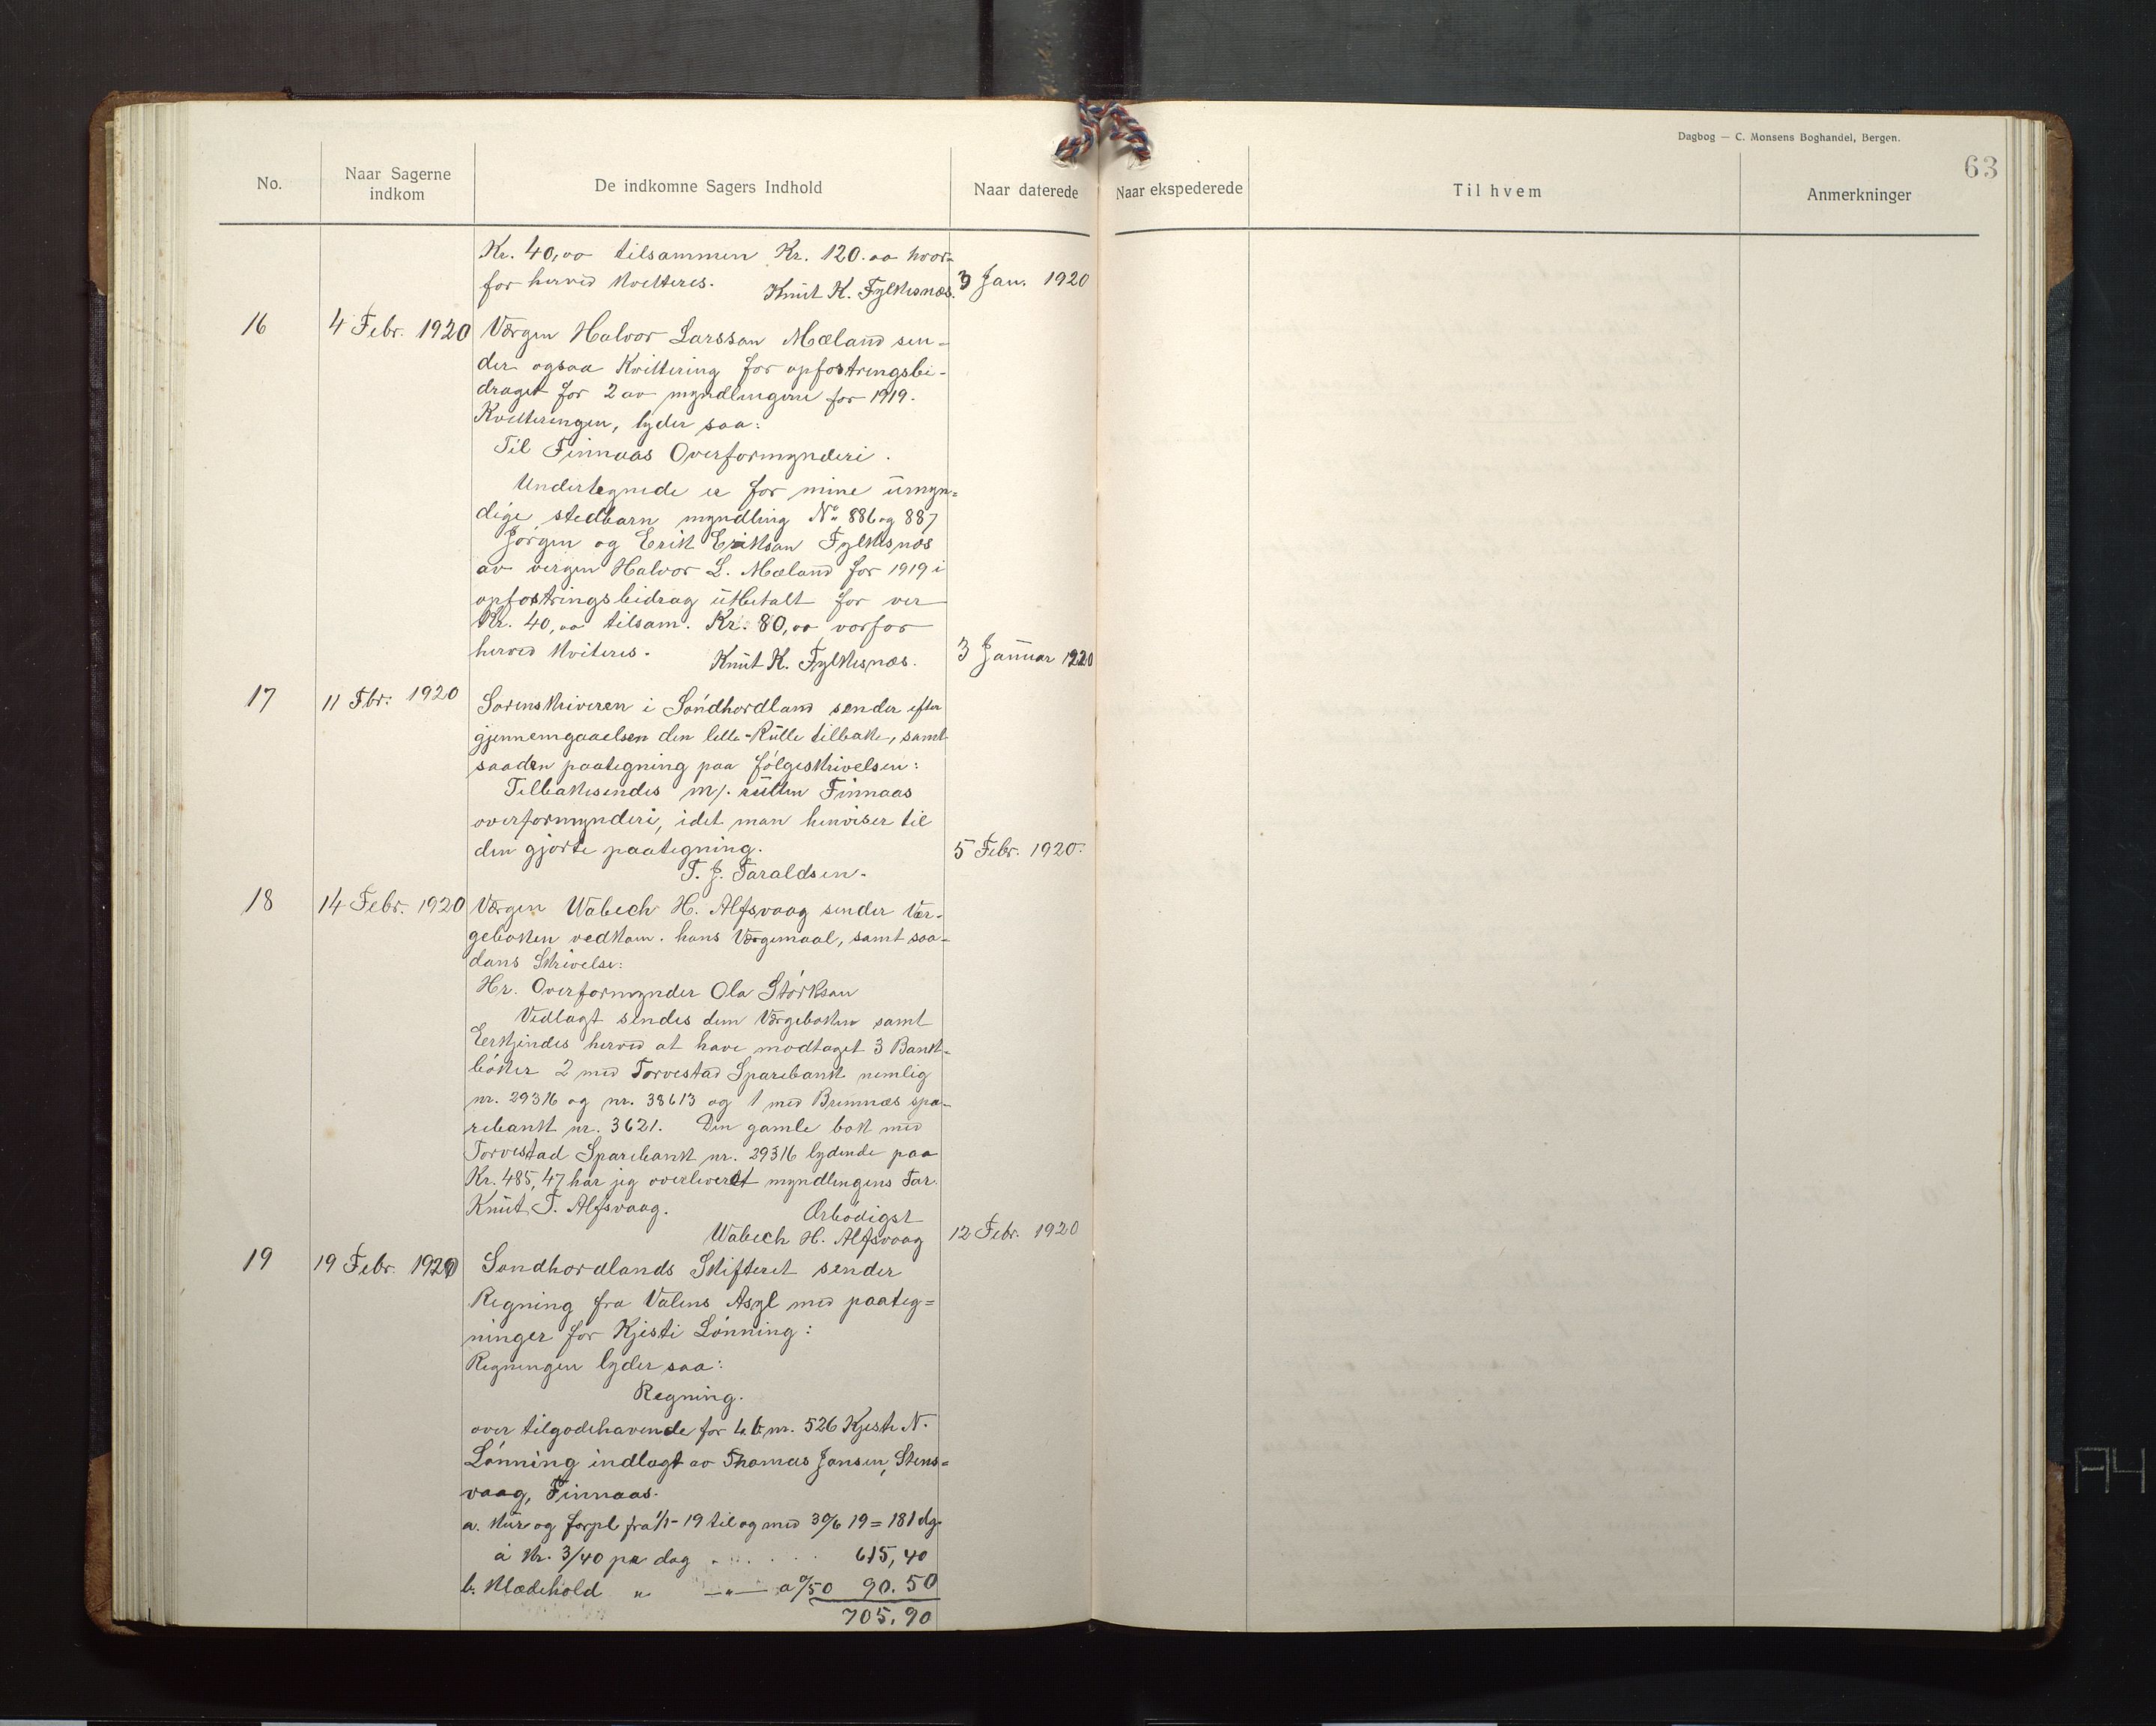 Dagbog — C. Monsens Boghandel, Bergen.
63
No.
Naar Sagerne indkom
De indkomne Sagers Indhold
Naar daterede
Naar ekspederede
Til hvem
Anmerkninger
Kr. 40,00 tilsammen Kr. 120.00 hvor-
for herved kvitteres.
Knut K. Fylkesnæs. 3 Jan. 1920
16 4 Febr. 1920 Værgen Halvor Larssan Mæland sen-
der ogsaa Kvittering for opfostringsbi-
draget for 2 av myndlingene for 1919.
Kvitteringen, lyder saa:
Til Finnaas Overformynderi.
Undertegnede er for mine umyn=
dige stedbarn myndling No 886 og 887
Jørgen og Erik Eriksan Fylkesnøs
av vergen Halvor L. Mæland for 1919 i
opfostringsbidrag utbetalt for ver
Kr. 40,00 tilsam. Kr. 80,00 vorfor
herved kviteres.
Knut K. Fylkesnæs. 3 Januar 1920
17 11 Fbr. 1920 Sorenskriveren i Søndhordland sender efter
gjennemgaaelsen den lille-Rulle tilbake, samt
saaden paategning paa følgeskrivelsen:
Tilbakesendes m/. rullen Finnaas
overformynderi, idet man henviser til
den gjorte paategning. 5 Febr. 1920.
T. J. Taraldsen.
18 14 Febr. 1920 Værgen Wabech H. Alfsvaag sender Vær-
geboken vedkom. hans Værgemaal, samt saa-
dans Skrivelse:
Hr. Overformynder Ola Størksan
Vedlagt sendes dem Værgeboken samt
Eerkjendes herved at have modtaget 3 Bank-
bøker 2 med Torvestad Sparebank nemlig
nr. 29316 og nr. 38613 og 1 med Bremnæs spa-
rebank nr. 3621. Den gamle bok med
Torvestad Sparebank nr. 29316 lydende paa
Kr. 485,47 har jeg overleveret myndlingens Far.
Knut T. Alfsvaag.
Ørbødigst
Wabech H. Alfsvaag 12 Febr. 1920
19 19 Febr. 1920 Sondhordlands Skifteret sender
Regning fra Valens Asyl med paateg=
ninger for Kjesti Lønning:
Regningen lyder saa:
Regning.
over tilgodehavende for nr. 526 Kjesti N.
Lønning indlagt av Thomas Jansen, Stens=
vaag, Finnaas.
a. Kur og forpl fra 1/1-19 til og med 30/6 19 = 181 dg.
á Kr. 3/40 pr dag . . . . . 615,40
b. Klædehold " —"— a 0/50 90.50
705,90